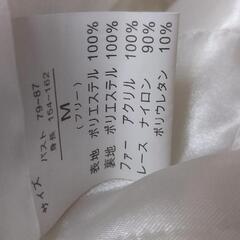 サイズ
バスト 79-87
身長 154-162
M
(フリー)
表地 ポリエステル 100%
裏地 ポリエステル 100%
ファー アクリル 100%
レース ナイロン 90%
ポリウレタン 10%